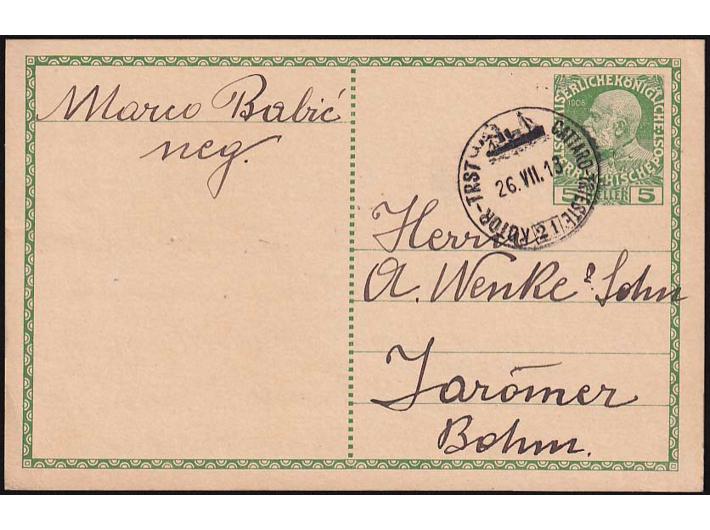 Marco Babić
neg.
KAISERLICHE KÖNIGLICHE ÖSTERREICHISCHE POST
1908
5 HELLER 5
CATTARO-TRIESTE
KOTOR-TRST
26.VII.13
21
Herrn
A. Wenke & Sohn
Jaroměr
Böhm.